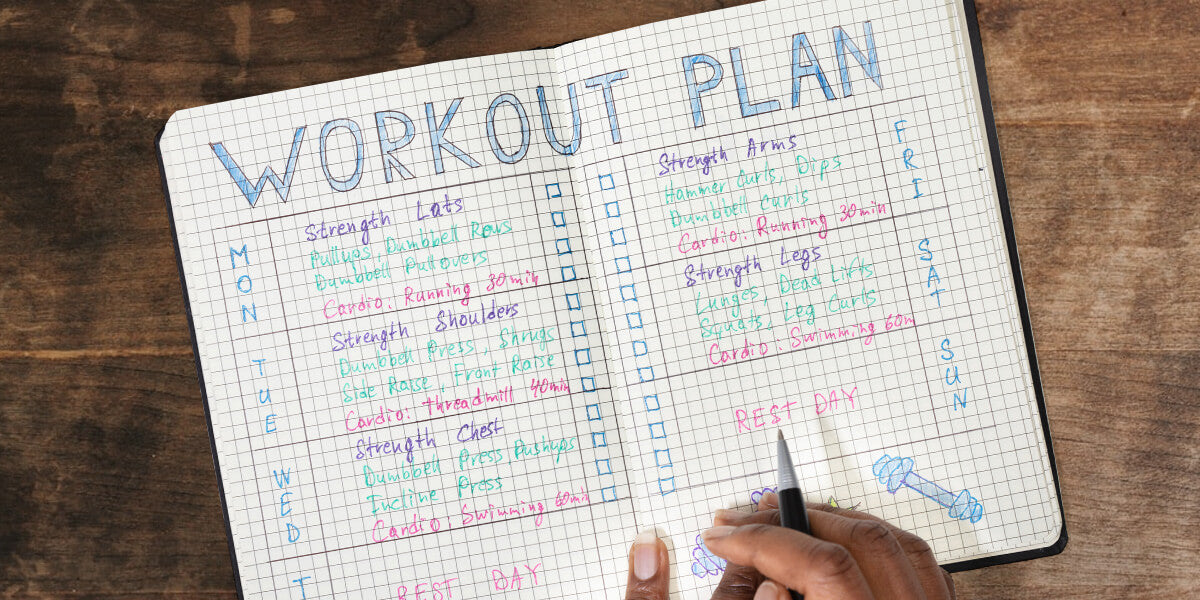 WORKOUT PLAN
MON
Strength Lats
Pullups, Dumbbell Rows
Dumbbell Pullovers
Cardio: Running 30min
TUE
Strength Shoulders
Dumbbell Press, Shrugs
Side Raise, Front Raise
Cardio: threadmill 40min
WED
Strength Chest
Dumbbell Press, Pushups
Incline Press
Cardio: Swimming 60min
T
REST DAY
FRI
Strength Arms
Hammer Curls, Dips
Dumbbell Curls
Cardio: Running 30min
SAT
Strength Legs
Lunges, Dead Lifts
Squats, Leg Curls
Cardio: Swimming 60m
SUN
REST DAY